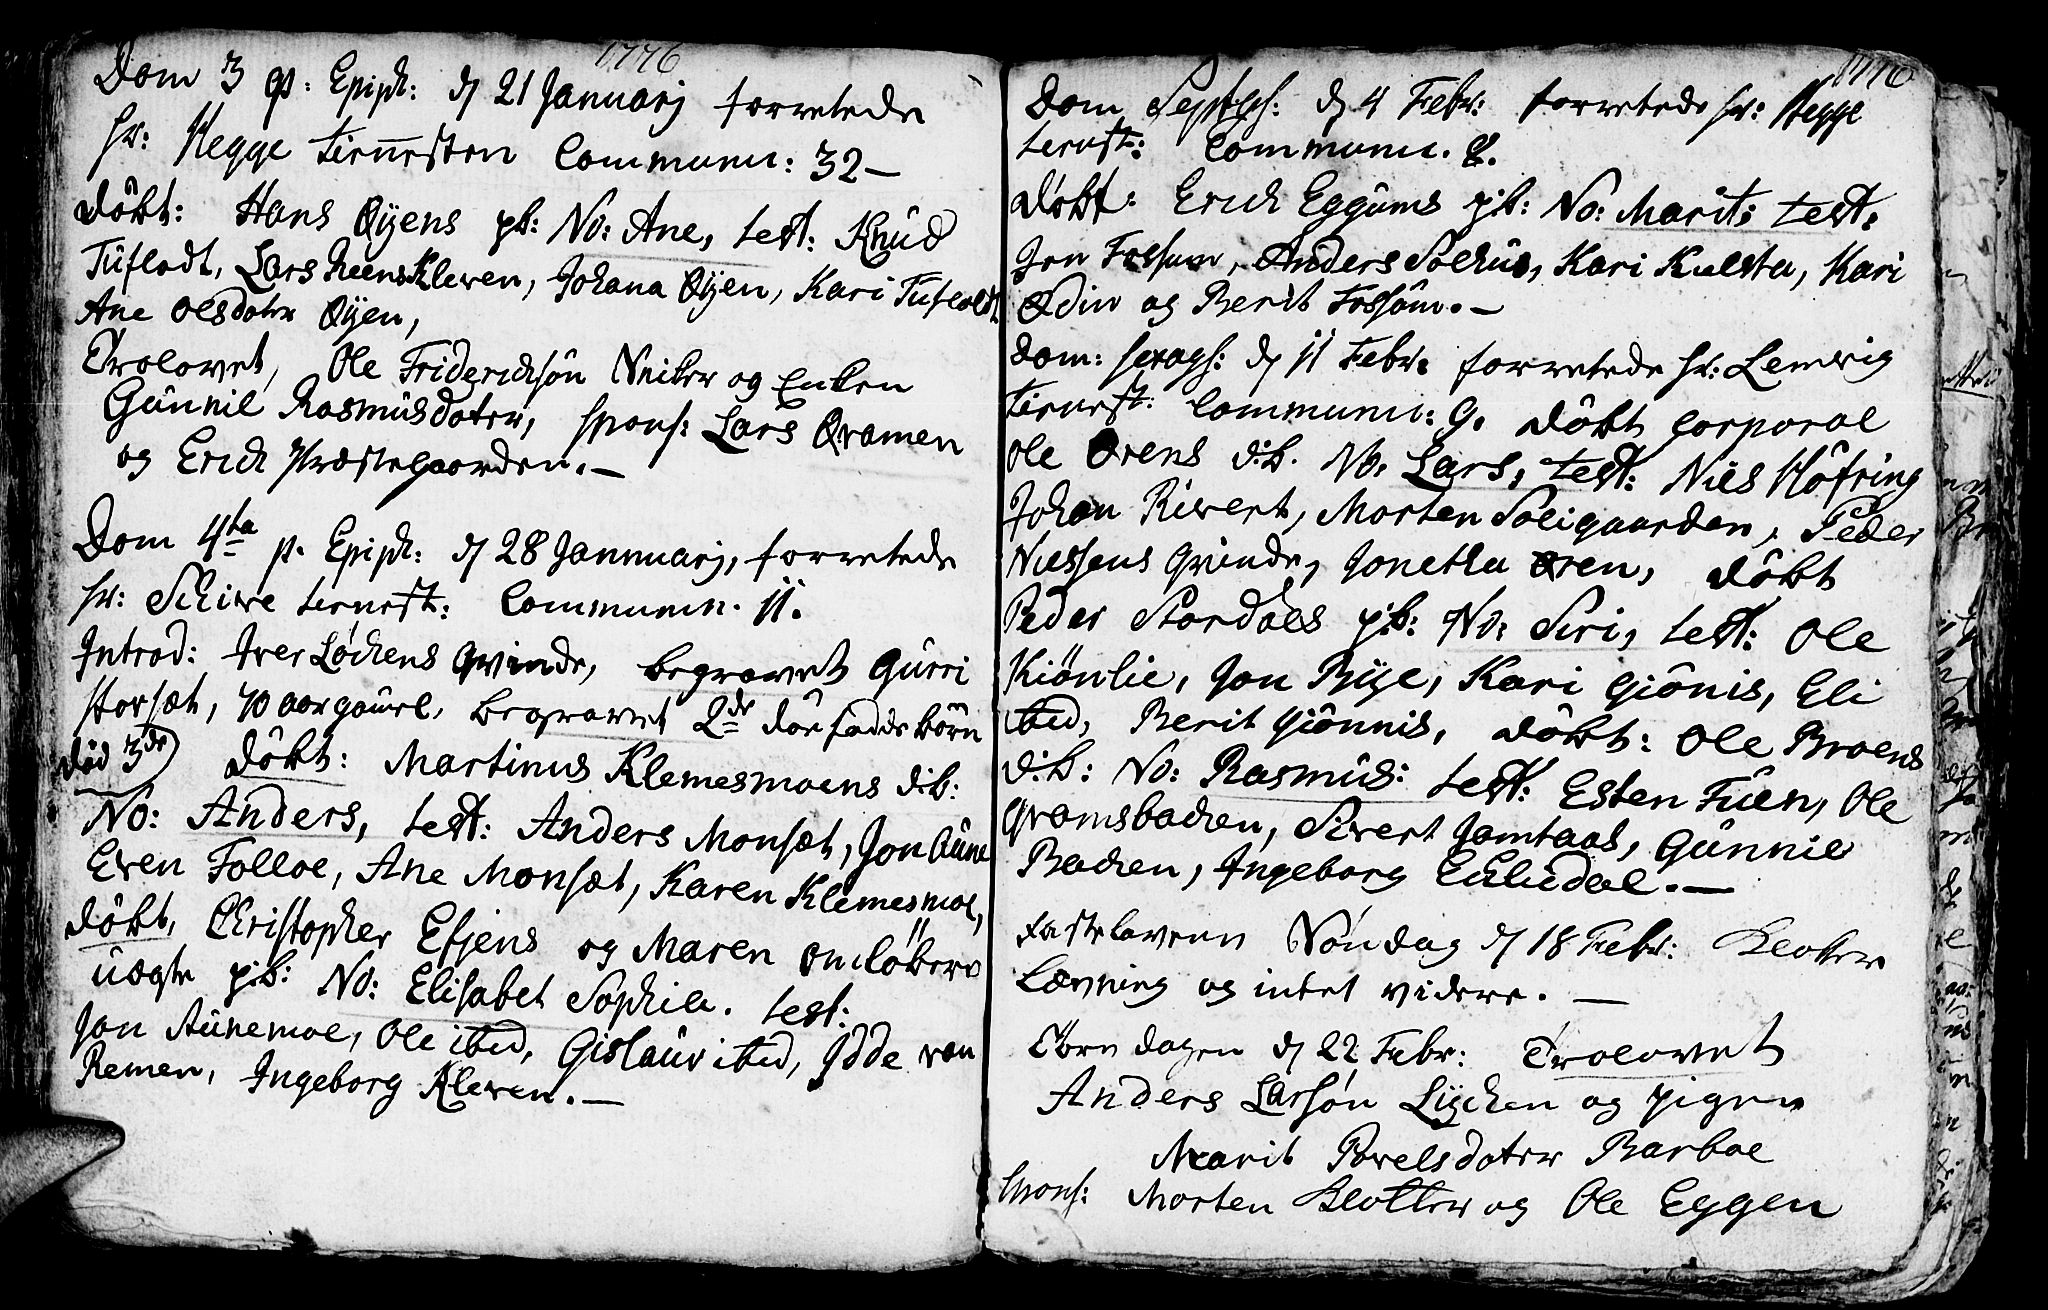 1776
Dom 3 p: Epiph: d 21 Januarj forretede
hr: Hegge tiennesten Communic: 32 —
døbt: Hans Øyens pb: No: Ane, test: Knud
Tuflodt, Lars ReensKleven, Johana Øyen, Kari Tufloedt
Ane Olsdater Øyen,
Trolovet, Ole Friderichsøn Neiber og Enken
Gunnil Rasmusdater, spons: Lars Qvamen
og Erich Præstegaarden. —
Dom 4ta p. Epiph: d 28 Jannuarj, forretede
hr: Schive tienest: Communic. 11.
Introd: Iver Løchens Qvinde, begravet Gurri
Storsæt, 70 aar gaml. begravet 2de døefødde børn
død 3de) døbt: Martinus Klemesmoens d:b:
No: Anders, test: Anders Monsæt, Jon Aune
Even Folloe, Ane Monsæt, Karen Klemesmoe,
døbt, Christopher Efjens og Maren Omløbers
uægte p:b: No: Elisabet Sophia. test:
Jon Aunemoe, Ole ibid, Gislaur ibid, Gdde von
Remen, Ingeborg Kleven. —
1776
Dom Septags: d 4 Febr: forretede hr: Hegge
tenest: Communic. 8.
døbt: Erich Eggums p:b: No: Marit: test:
Jon Fossum, Anders Solhus, Kari Kulsta, Kari
Ødin og Berit Fossum. —
Dom: sexags: d 11 Febr: forretede hr: Lemvig
tienest: Communic: 9. døbt Corporal
Ole Ørens d:b. No: Lars, test: Niels Høfring
Johan Rivert, Morten Soligaarden, Peder
Nielsens Qvinde, Jonetha Øren, døbt
Peder Stordals p:b: No: Siri, test: Ole
Kiønlie, Jon Bye, Kari Giønis, Eli
ibid, Berit Giønnis, døbt: Ole Broens
d:b: No: Rasmus: test: Esten Tuen, Ole
Gramsbachen, Sivert Jamtaas, Gunnil
Bachen, Ingeborg Euludal. —
Fastelavens Søndag d 18 Febr: Klotter
Læsning og intet videre. —
Torsdagen d 22 Febr: Trolovet
Anders Larsøn Lychen og pigen
Marit Povelsdater Barboe
spons: Morten Klotter og Ole Eggen